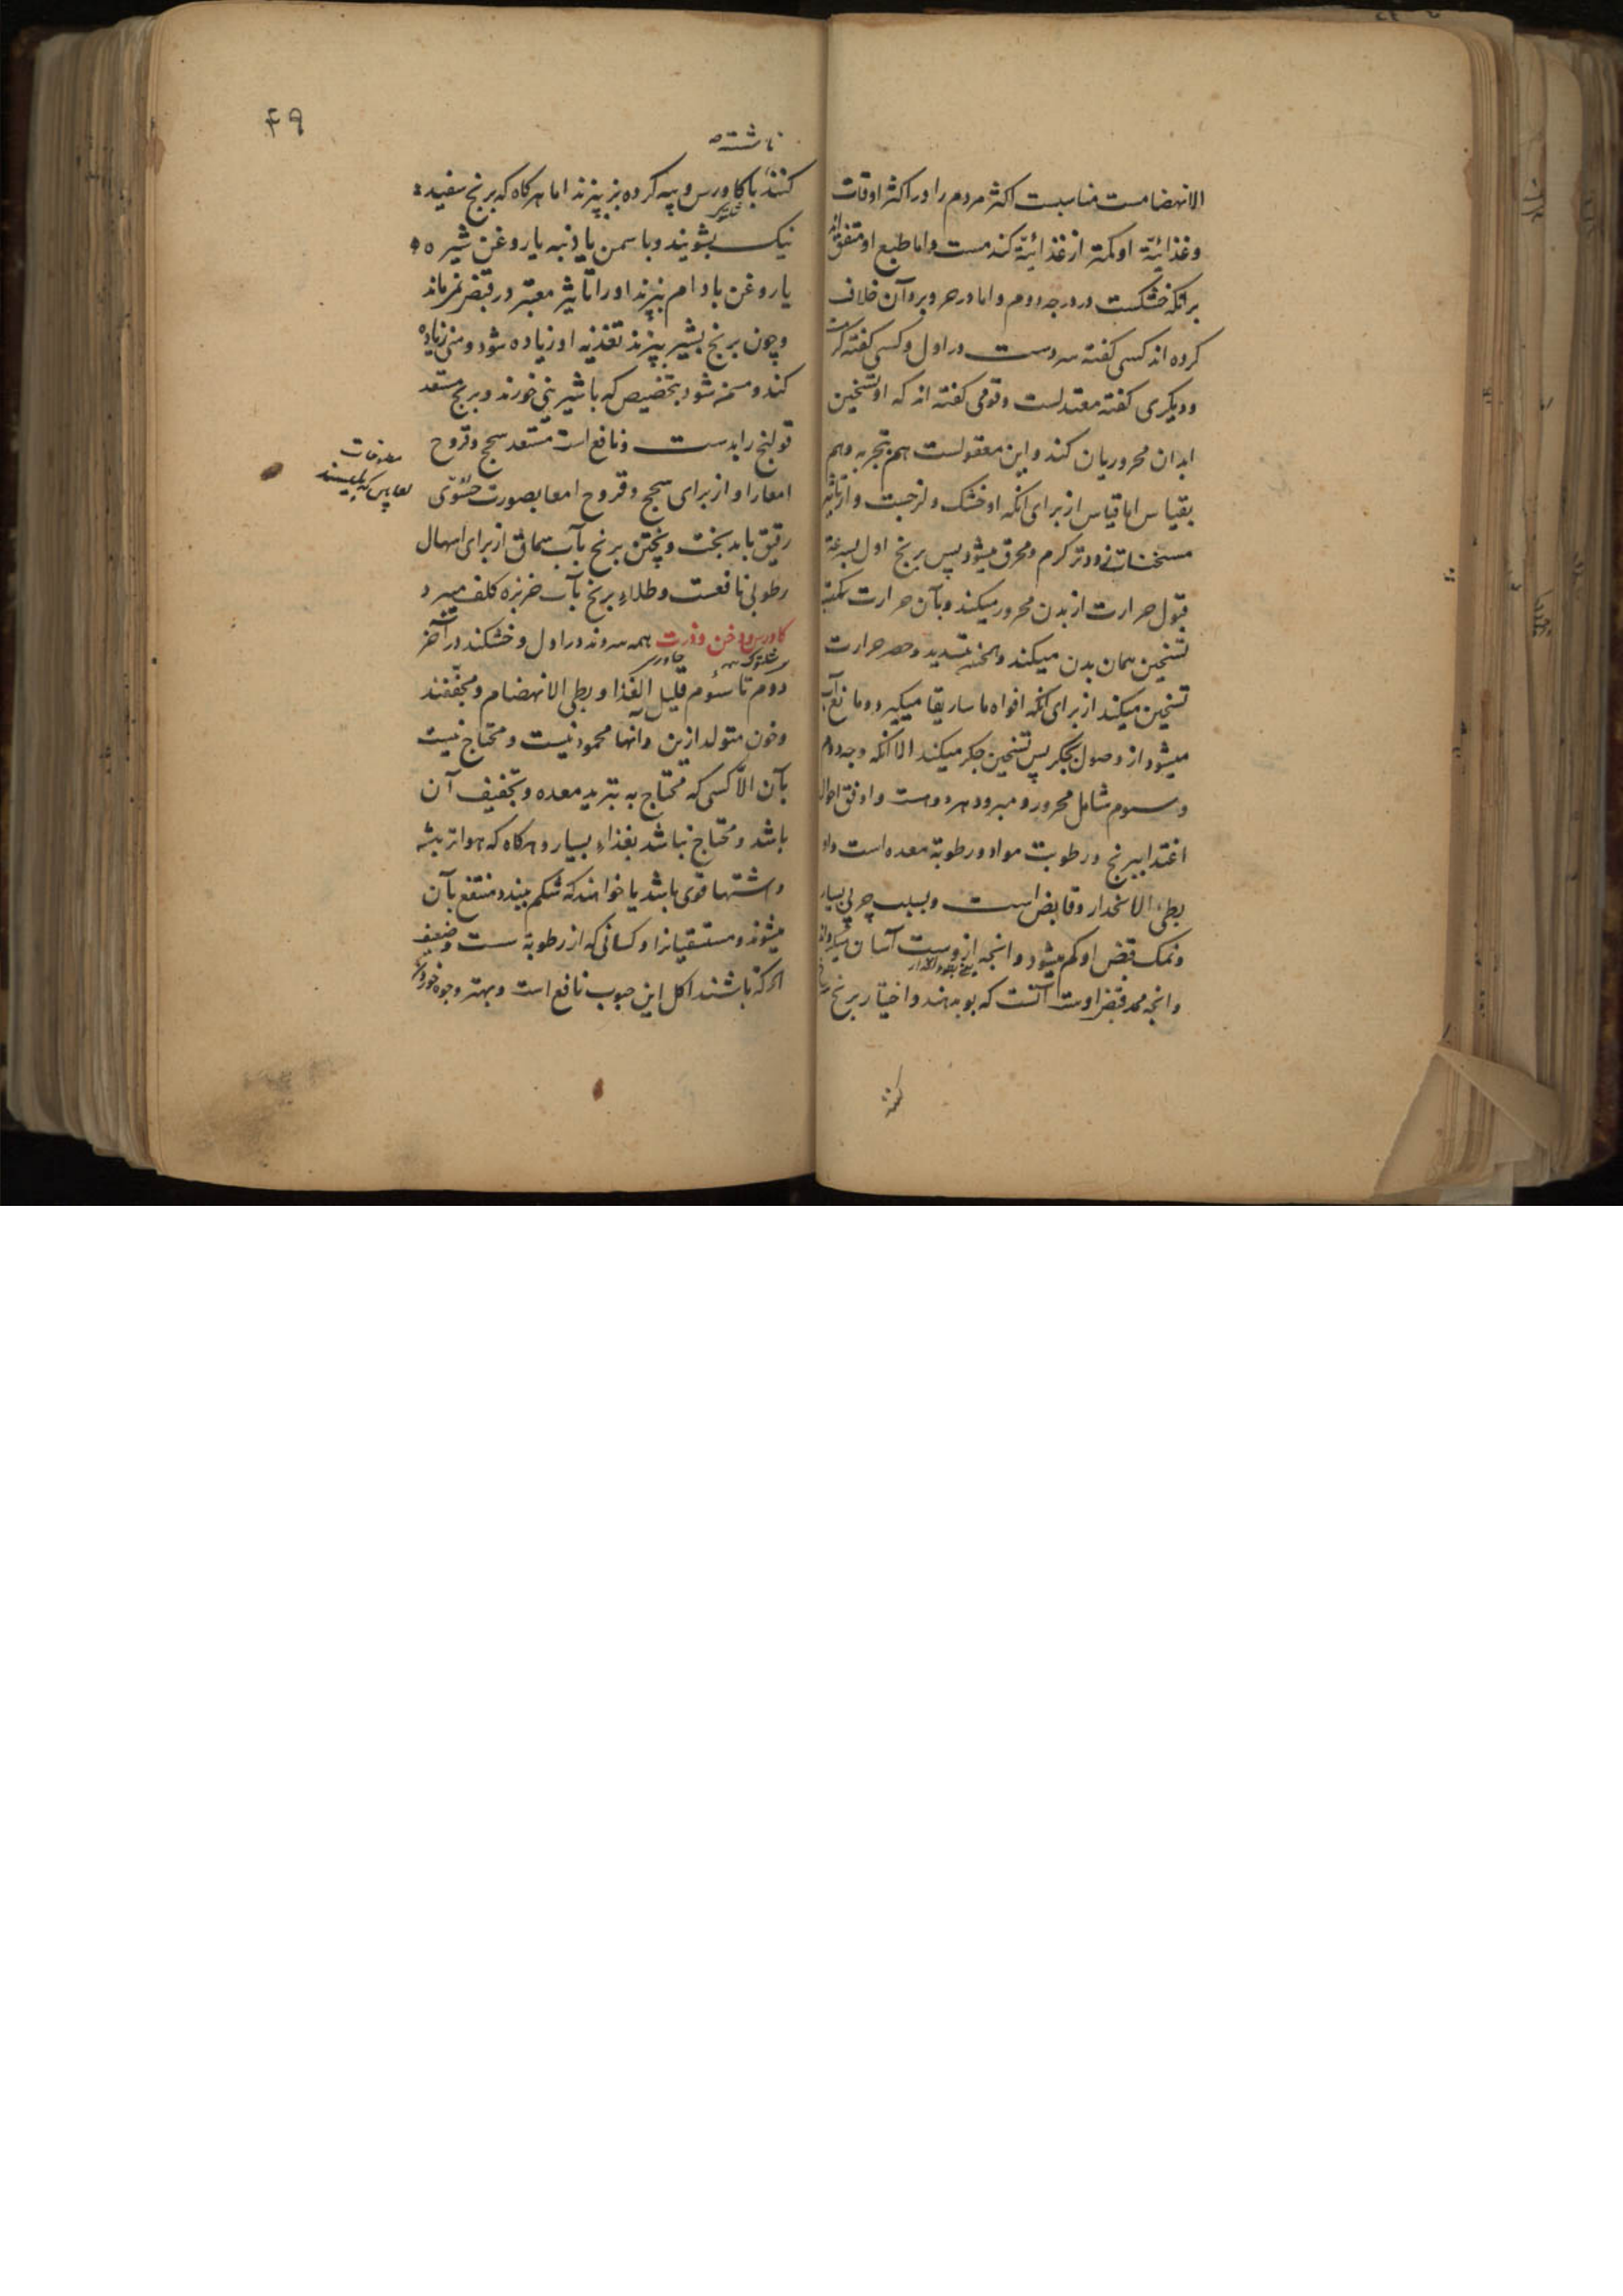 الانهضامست مناسبت اکثر مردم را در اکثر اوقات
وغذائیّة او کمتر از غذائیّة کندمست واما طبع او متفق اند
برآنکه خشکست در درجه دوم واما در حر وبرد آن خلاف
کرده اند کسی کفته سردست در اول وکسی کفته کرمست
ودیکری کفته معتدلست وقومی کفته اند که او تسخین
ابدان محروریان کند واین معقولست هم بتجربه وهم
بقیاس اما قیاس از برای آنکه او خشک ولزجست واز تاثیر
مسخنات زودتر کرم ومحرق میشود پس برنج اول بسرعة
قبول حرارت از بدن محرور میکند وبآن حرارت
تسخین همان بدن میکند وبتسدید وحصر حرارت
تسخین میکند از برای آنکه افواه ماساریقا میکیرد ومانع آب
میشود از وصول بجکر پس تسخین جکر میکند الا آنکه وجه دوم
وسوم شامل محرور ومبرود هر دوست واوفق احوال
اغتذا ببرنج در رطوبت مواد ورطوبة معده است واو
بطئ الانحدار وقابض است وبسبب چربی بسیار
ونمک قبض او کم میشود وانچه از وست آسان
وانچه ممد قبض اوست آنست که بو بدهند واختیار برنج
کنند
۴۹
ناشسته
کنند با کاورس وپیه کرده بز بپزند اما هرکاه که برنج سفید
نیک بشویند وبا سمن یا دنبه یا روغن شیره
یا روغن بادام بپزند او را تاثیر معتبر در قبض نمیماند
وچون برنج بشیر بپزند تغذیه او زیاده شود ومنی زیاده
کند ومسمن شود بتخصیص که با شیرینی خورند وبرنج مستعد
قولنج را بدست ونافع است مستعد سحج وقروح
امعا را واز برای سحج وقروح امعا بصورت حسوّی
رقیق باید پخت وپختن برنج بآب سماق از برای اسهال
رطوبی نافعست وطلاء برنج بآب خربزه کلف میبرد
کاورس ودخن وذرت همه سردند در اول وخشکند در آخر
جاورس
دوم تا سئوم قلیل الغذا وبطی الانهضام ومجفّفند
وخون متولد ازین دانها محمود نیست ومحتاج نیست
بآن الّا کسی که محتاج به تبرید معده وتجفیف آن
باشد ومحتاج نباشد بغذاء بسیار وهرکاه که هوا تر باشد
واشتها قوی باشد یا خواهند که شکم ببندد منتفع بآن
میشوند ومستسقیانرا وکسانی که از رطوبة سست وضعیف
باشند اکل این حبوب نافع است وبهتر وجوه خوردن